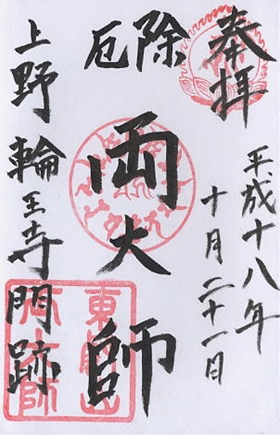 奉拝
平成十八年
十月二十一日
厄除
両大師
上野輪王寺門跡